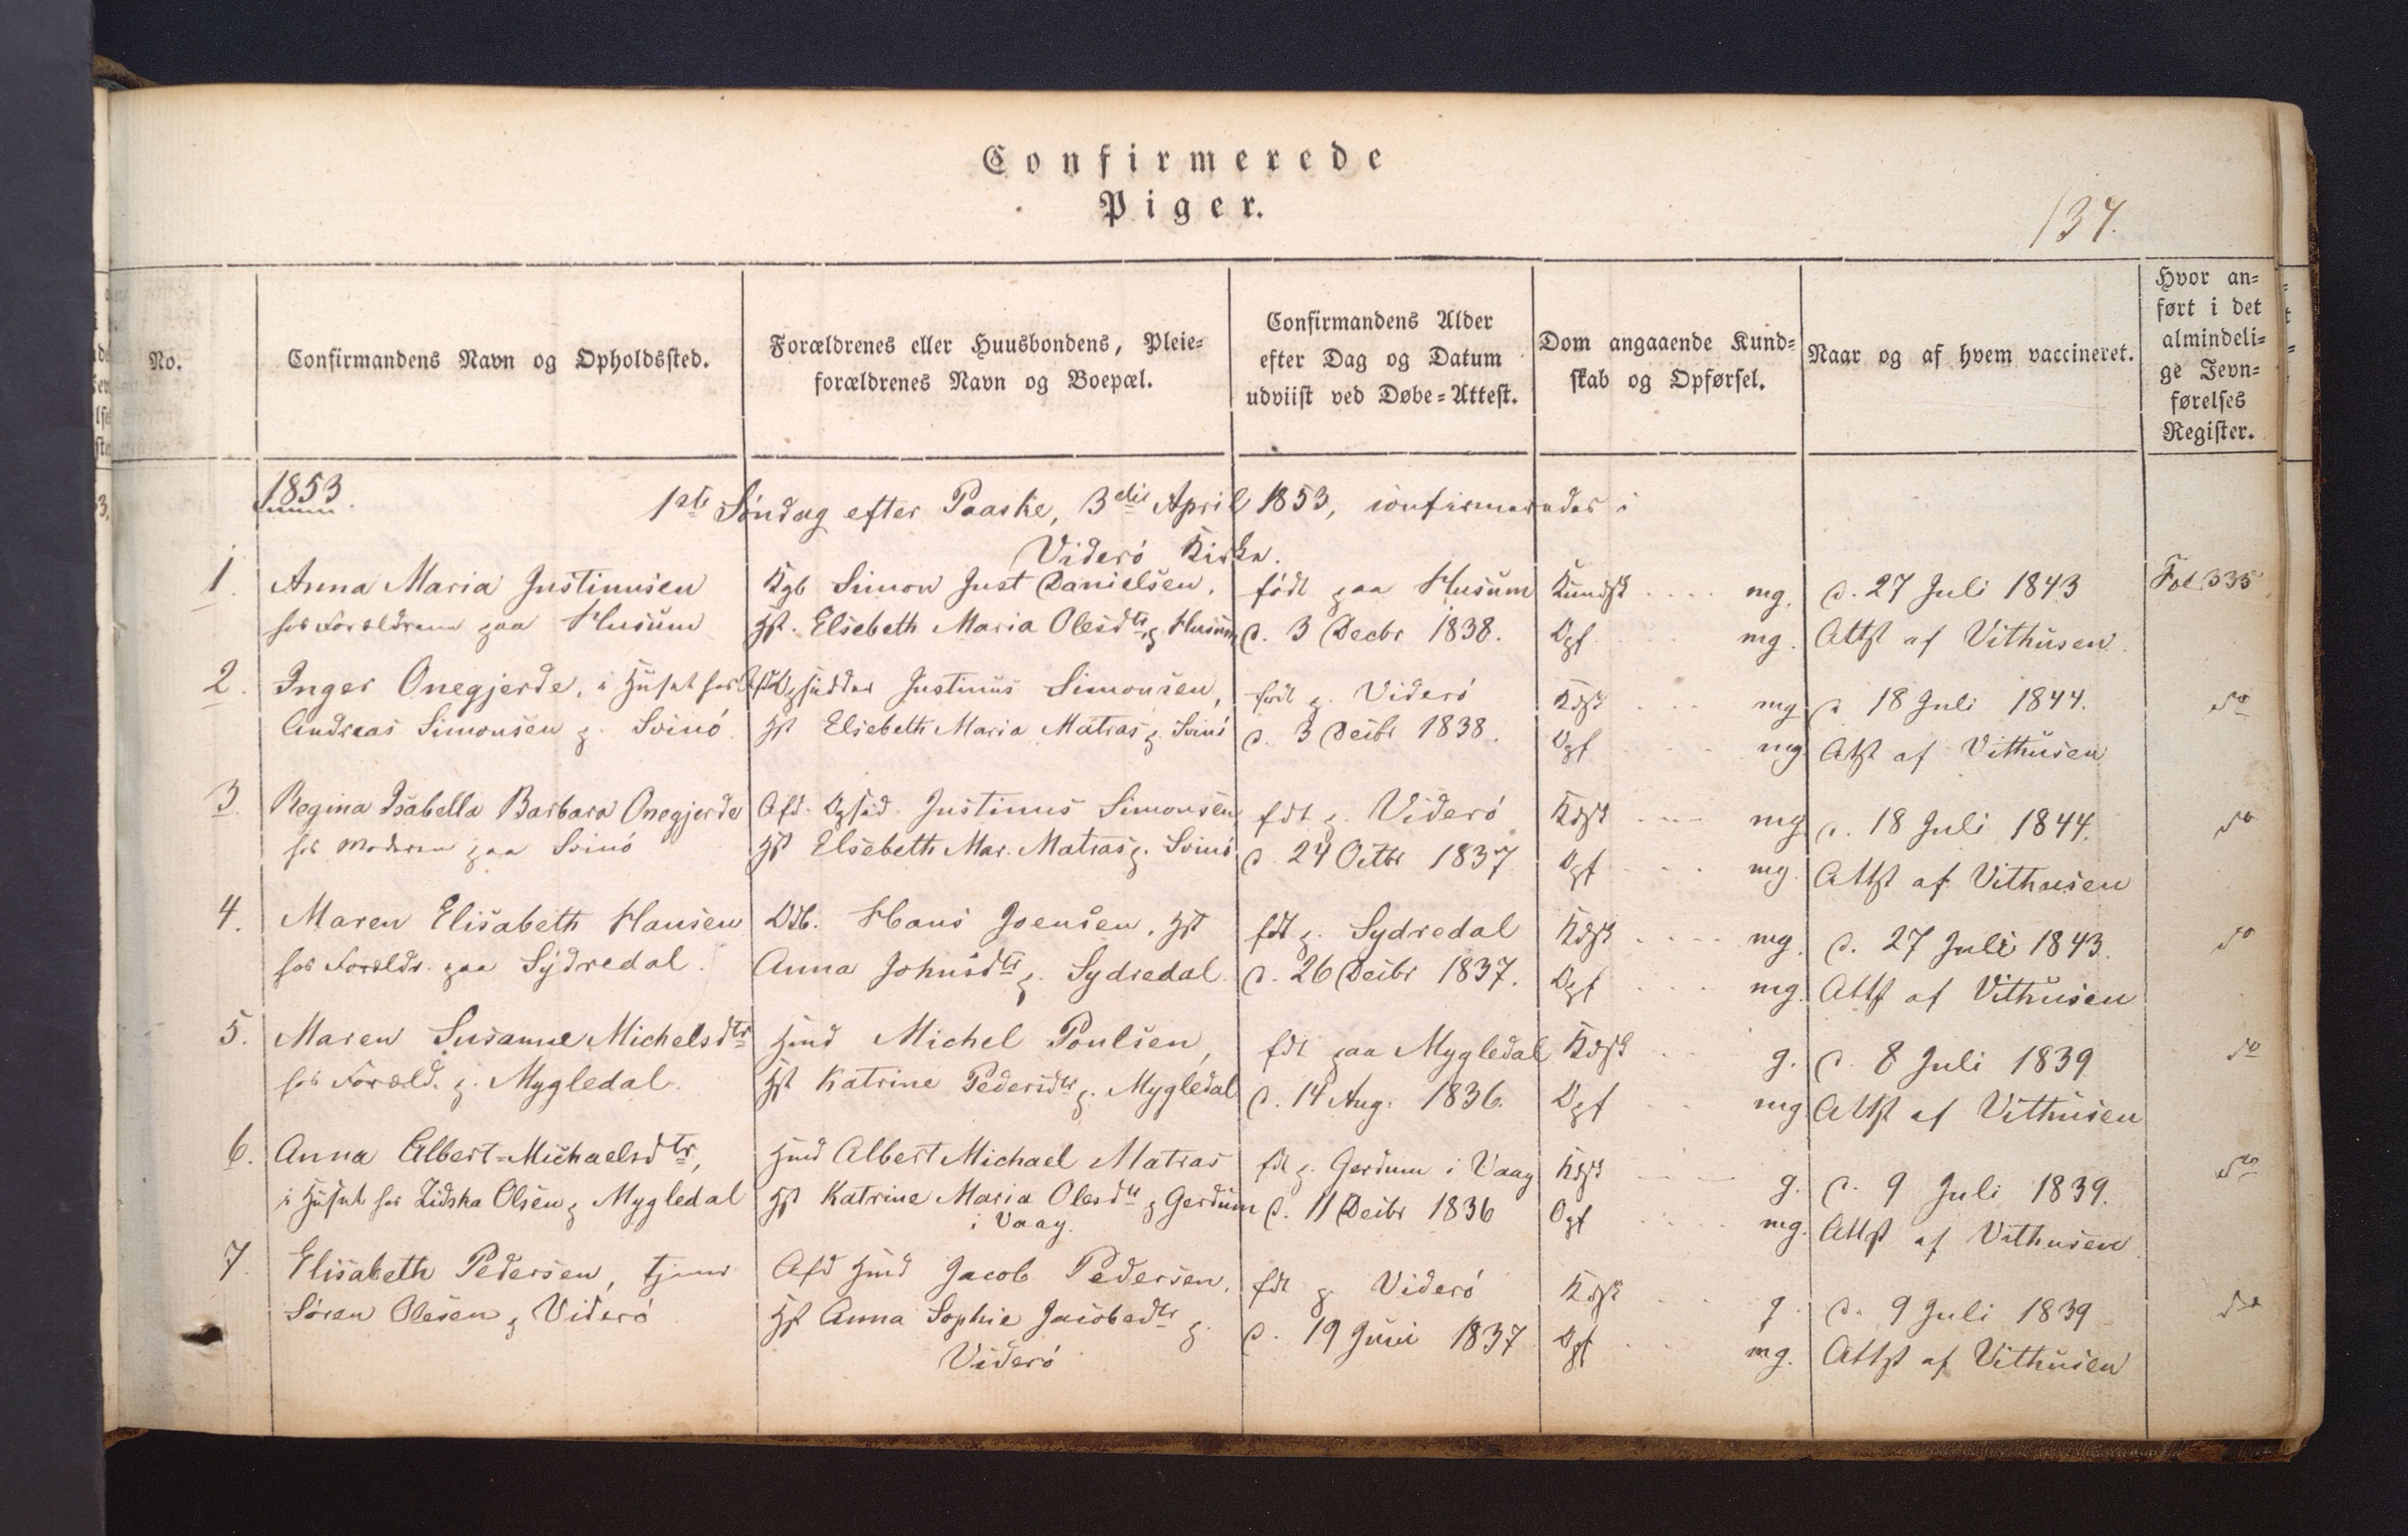 Confirmerede
Piger.
137.
No.
Confirmandens Navn og Opholdssted.
Forældrenes eller Huusbondens, Pleie=
forældrenes Navn og Boepæl.
Confirmandens Alder
efter Dag og Datum
udviist ved Døbe=Attest.
Dom angaaende Kund=
skab og Opførsel.
Naar og af hvem vaccineret.
Hvor an=
ført i det
almindeli=
ge Jevn=
førelses
Register.
1853.
1ste Søndag efter Paaske, 3die April 1853, confirmeredes i
Viderø Kirke.
1. Anna Maria Justinusen
hos Forældrene paa Husum
Kgb Simon Just Danielsen,
Hst. Elsebeth Maria Olesdtr, p Husum
født paa Husum
d. 3 Decbr 1838.
Kundsk .... mg.
Opf mg.
d. 27 Juli 1843
Attst af Vithusen
Fol 335
2. Inger Onegjerde, i Huset hos
Andreas Simonsen p. Svinø.
Opsidder Justinus Simonsen,
Hst Elsebeth Maria Matras p. Svinø
født p. Viderø
d. 3 Decbr 1838.
Kdsk ... mg
Opf mg.
d 18 Juli 1844.
Atst af Vithusen
do
3. Regina Isabella Barbara Onegjerde
hos Moderen paa Svinø
Afd. Opsid. Justinus Simonsen
Hst Elsebeth Mar. Matras p. Svinø
fdt p. Viderø
d. 24 Octbr 1837
Kdsk ... mg
Opf ... mg.
d. 18 Juli 1844.
Attst af Vithusen
do
4. Maren Elisabeth Hansen
hos Forældr. paa Sydredal.
Odb. Hans Joensen, Hst
Anna Johnsdtr p. Sydredal
fdt p. Sydredal
d. 26 Decbr 1837.
Kdsk .... mg.
Opf ... mg.
d. 27 Juli 1843.
Attst af Vithusen
do
5. Maren Susanne Michelsdtr
hos Foræld. p. Mygledal.
Hmd Michel Poulsen,
Hst Katrine Pedersdtr p. Mygledal
fdt paa Mygledal
d. 14 Aug. 1836.
Kdsk .. g.
Opf .. mg
d. 8 Juli 1839
Attst af Vithusen
do
6. Anna Albert=Michaelsdtr,
i Huset hos Zidska Olsen p Mygledal
Hmd Albert Michael Matras
Hst Katrine Maria Olesdtr p Gerdum
i Vaag.
fdt p. Gerdum i Vaag
d. 11 Decbr 1836
Kdsk g.
Opf .... mg.
d. 9 Juli 1839.
Attst af Vithusen
do
7. Elisabeth Pedersen, tjener
Søren Olesen p Viderø
Afd Hmd Jacob Pedersen,
Hst Anna Sophie Jacobsdtr p.
Viderø
fdt p. Viderø
d. 19 Juni 1837
Kdsk .. g.
Opf ... mg.
d. 9 Juli 1839
Attst af Vithusen
do